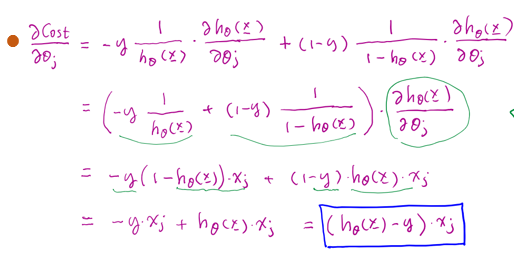 ∂Cost/∂θj = -y 1/hθ(x) · ∂hθ(x)/∂θj + (1-y) 1/(1-hθ(x)) · ∂hθ(x)/∂θj
= (-y 1/hθ(x) + (1-y) 1/(1-hθ(x))) · ∂hθ(x)/∂θj
= -y(1-hθ(x))·xj + (1-y)·hθ(x)·xj
= -y·xj + hθ(x)·xj = (hθ(x)-y)·xj